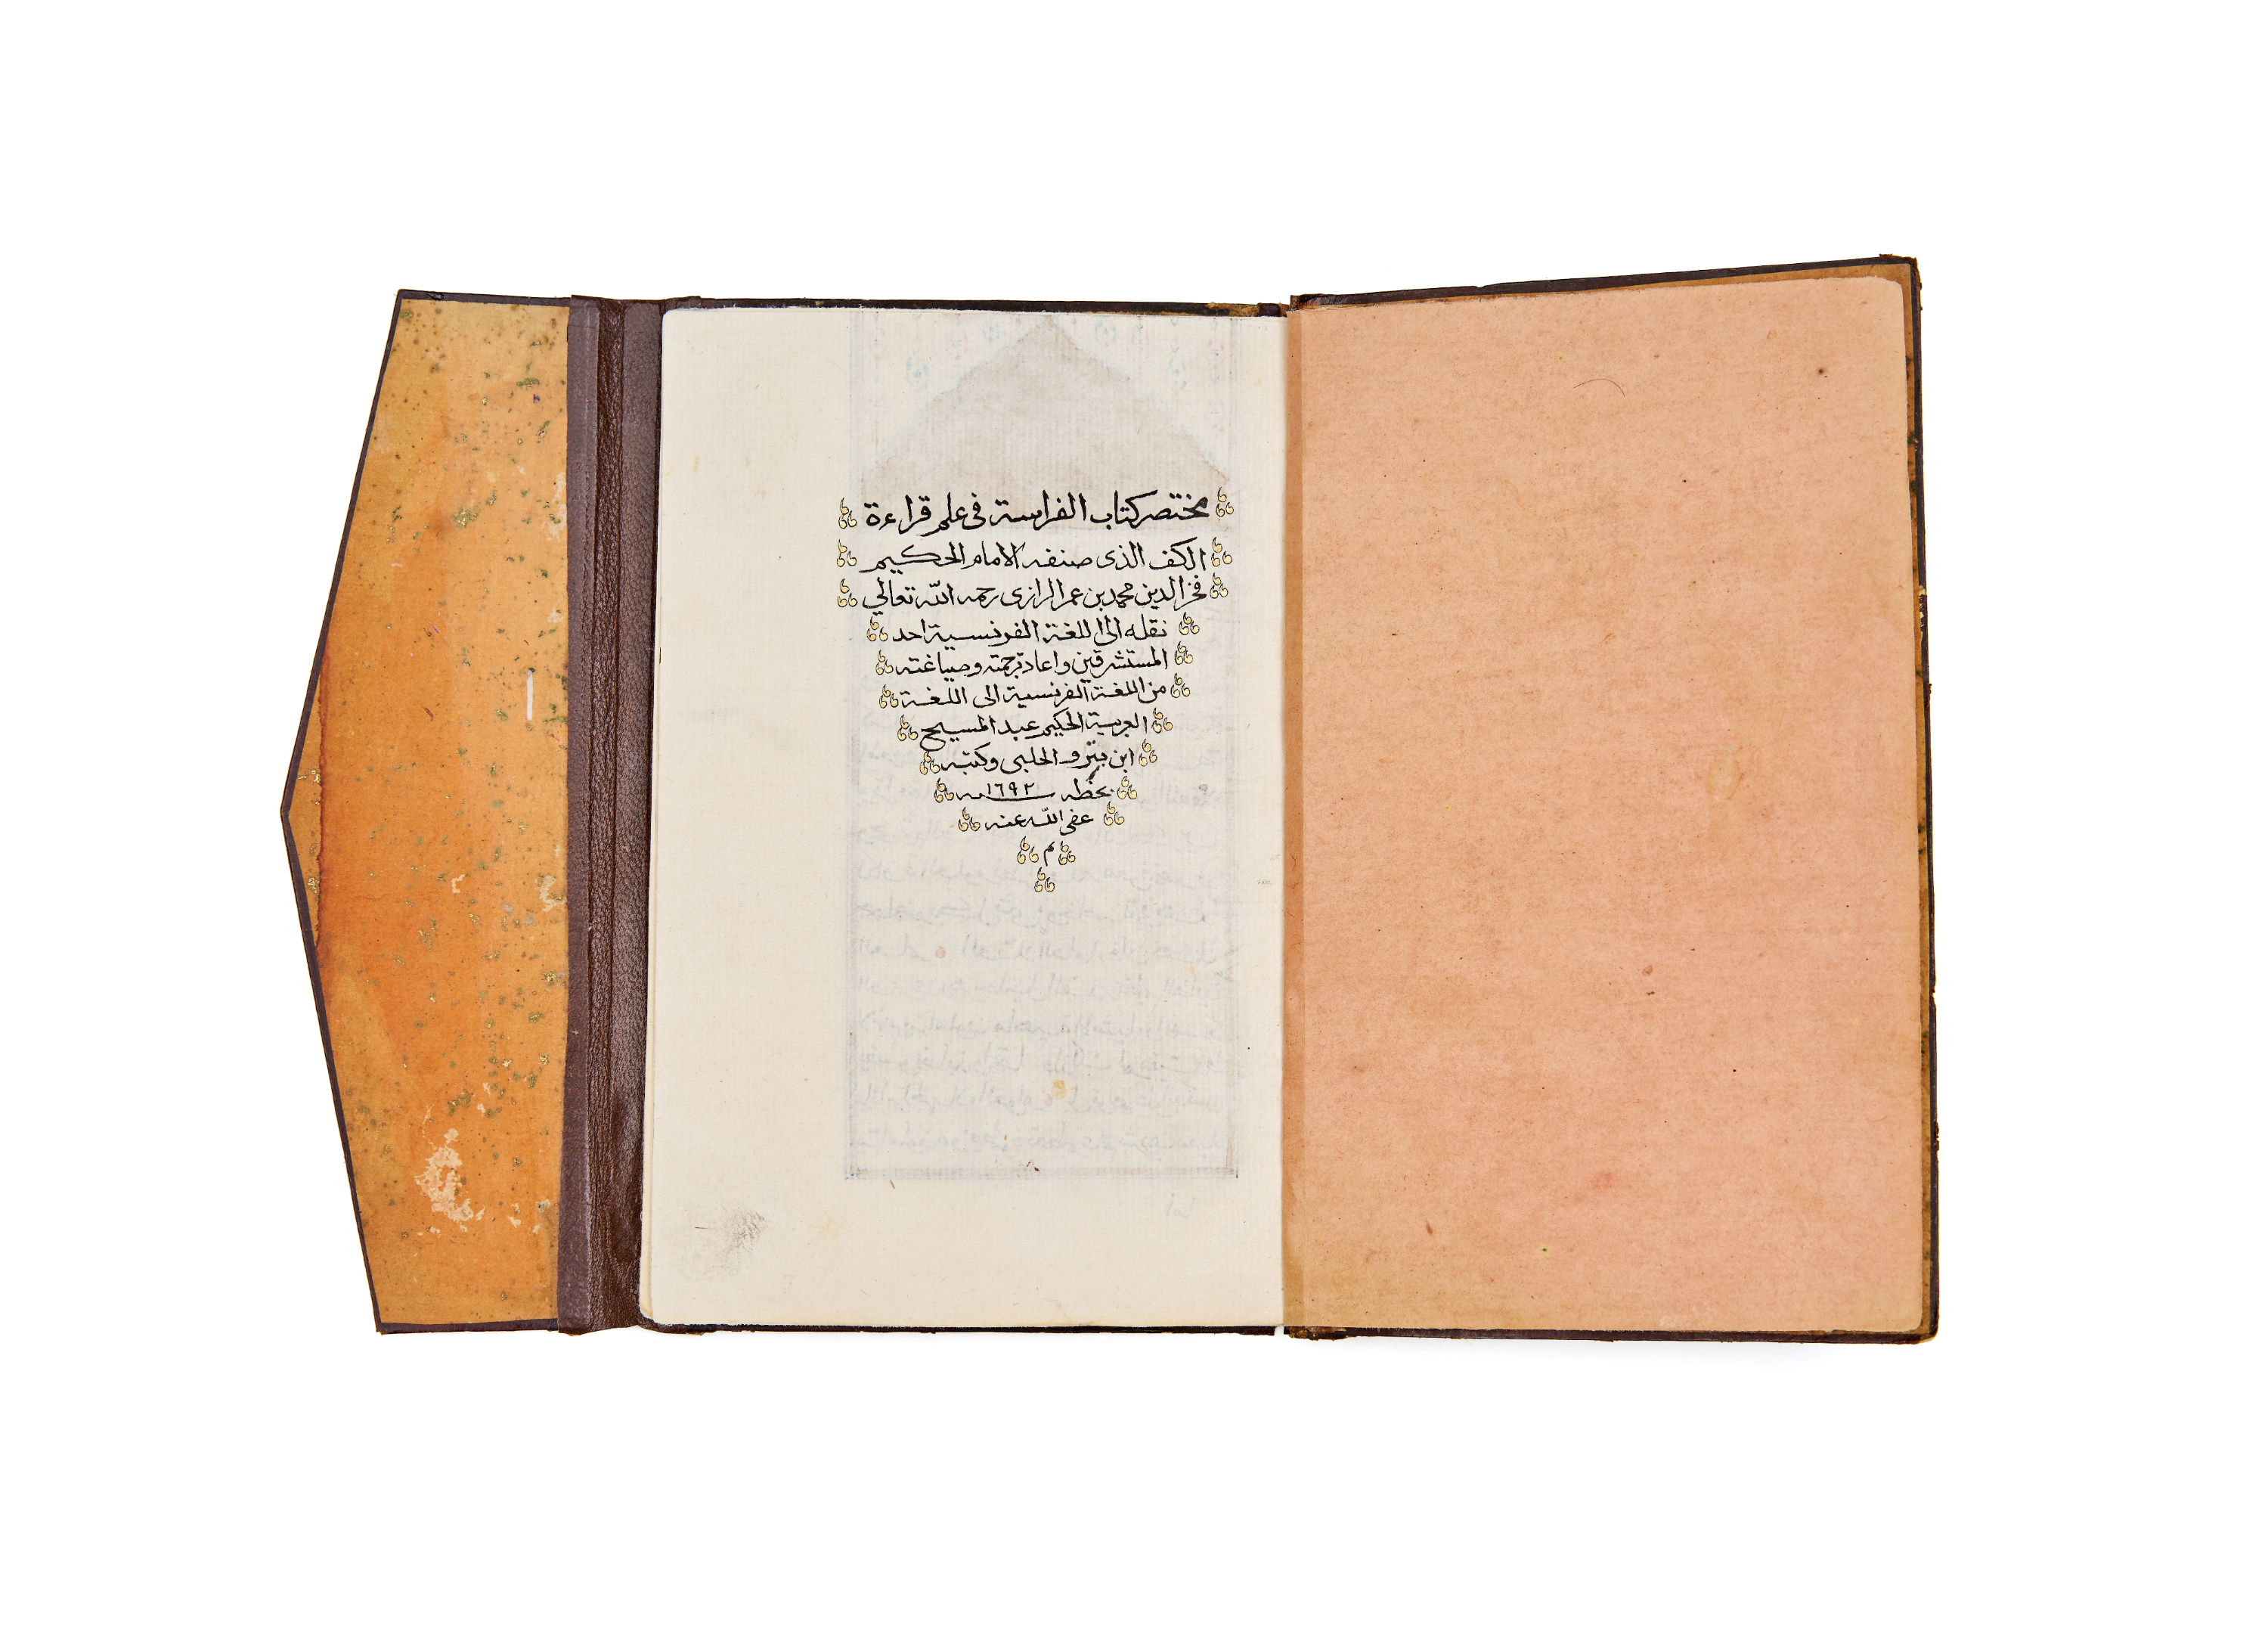 مختصر كتاب الفراسة فى علم قراءة
الكف الذى صنفه الامام الحكيم
فخر الدين محمد بن عمر الرازى رحمه اللّه تعالي
نقله الى اللغة الفرنسية احد
المستشرقين واعاد ترجمته وصياغته
من اللغة الفرنسية الى اللغة
العربية الحكيم عبد المسيح
ابن بيترو الحلبى وكتبه
بخطه سنه ١٦٩٢
عفى اللّه عنه
م